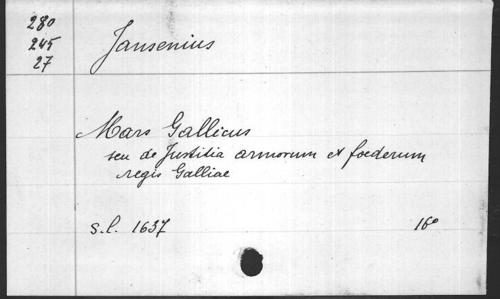 280
245
27
Jansenius
Mars Gallicus
seu de Justitia armorum et foederum
regis Galliae
s.l. 1637 16°